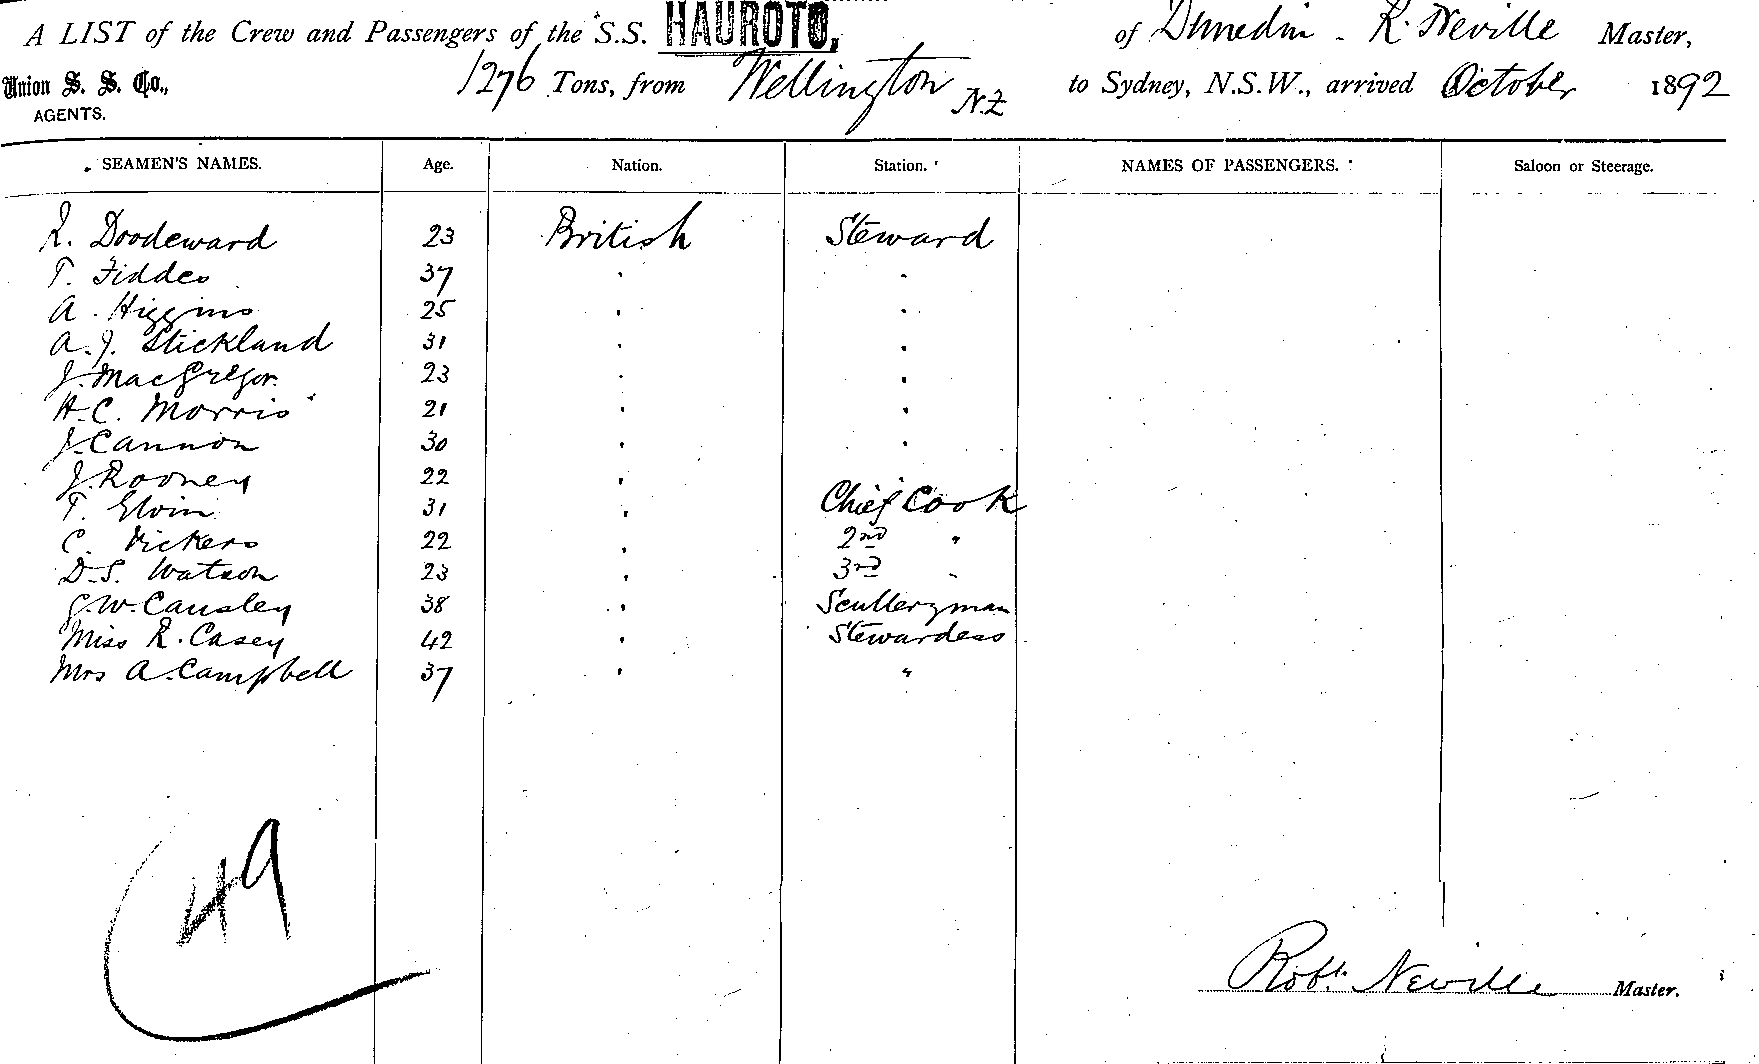 A LIST of the Crew and Passengers of the S.S. HAUROTO, of Dunedin - R. Neville Master,
Union S. S. Co., 1276 Tons, from Wellington N.Z to Sydney, N.S.W., arrived October 1892
AGENTS.
SEAMEN'S NAMES. Age. Nation. Station. NAMES OF PASSENGERS. Saloon or Steerage.
R. Doodeward 23 British Steward
T. Fiddes 37 " "
A. Higgins 25 " "
A.J. Stickland 31 " "
J. MacGregor 23 " "
H.C. Morris 21 " "
J. Cannon 30 " "
J. Rooney 22 "
T. Elvin 31 " Chief Cook
C. Vickers 22 " 2nd "
D.S. Watson 23 " 3rd "
G.W. Causley 38 " Sculleryman
Miss R. Casey 42 " Stewardess
Mrs A. Campbell 37 " "
49
Robt. Neville Master.